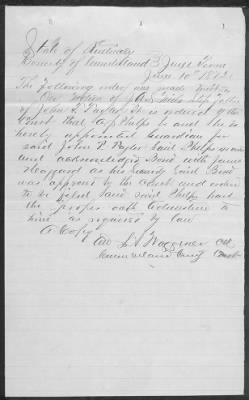 State of Kentucky
County of Cumberland } June Term
June 10th 1872
The following order was made
On Motion of Step Father
of John P. it is ordered by the
Court that Phelps be and he is
hereby appointed Guardian for
said John P. Said Phelps
and acknowledged Bond with James
Haggard as his Security Said Bond
was approved by the Court and order
to be filed said Phelps
the proper oath administer to
him as required by law
A Copy
Att
Cumberland County Court